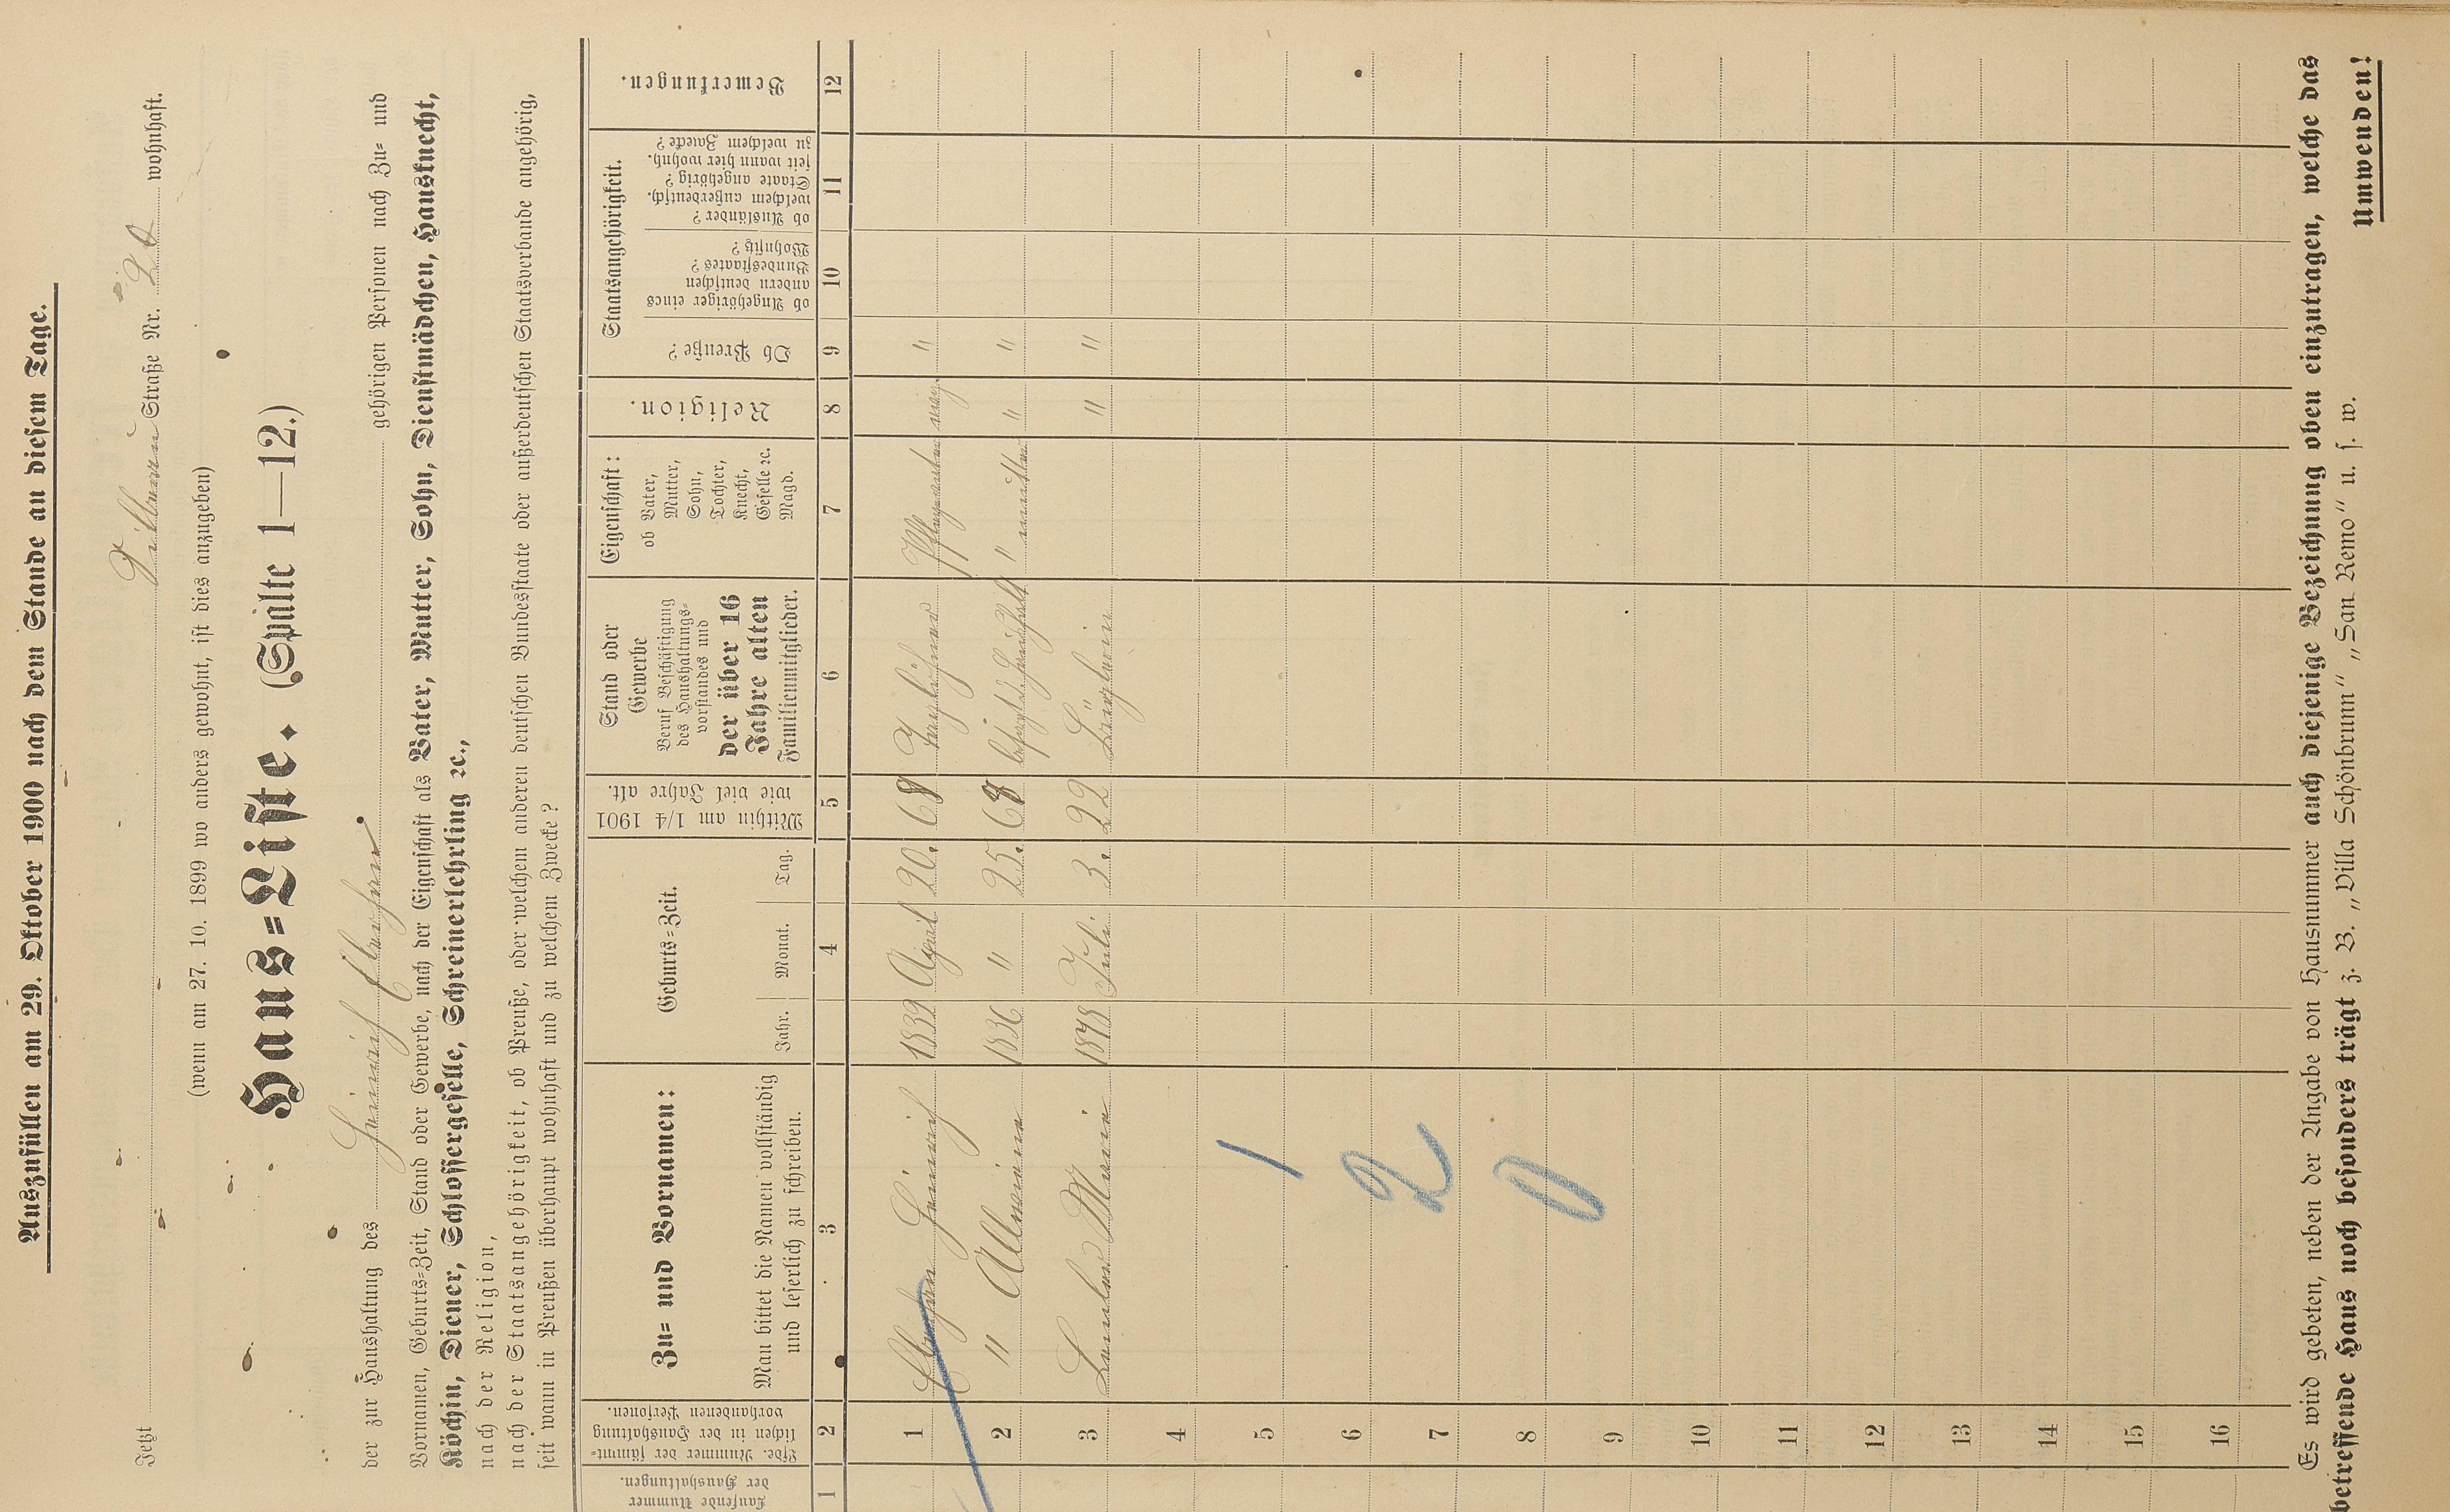 Auszufüllen am 29. Oktober 1900 nach dem Stande an diesem Tage.
Jetzt Straße Nr. 20 wohnhaft.
(wenn am 27. 10. 1899 wo anders gewohnt, ist dies anzugeben)
Haus=Liste. (Spalte 1—12.)
der zur Haushaltung des Heinrich gehörigen Personen nach Zu= und
Vornamen, Geburts=Zeit, Stand oder Gewerbe, nach der Eigenschaft als Vater, Mutter, Sohn, Dienstmädchen, Hausknecht,
Köchin, Diener, Schlossergeselle, Schreinerlehrling ꝛc.,
nach der Religion,
nach der Staatsangehörigkeit, ob Preuße, oder welchem anderen deutschen Bundesstaate oder außerdeutschen Staatsverbande angehörig,
seit wann in Preußen überhaupt wohnhaft und zu welchem Zwecke?
Laufende Nummer
der Haushaltungen.
1
Lfde. Nummer der sämmt=
lichen in der Haushaltung
vorhandenen Personen.
2
Zu= und Vornamen:
Man bittet die Namen vollständig
und leserlich zu schreiben.
3
Geburts=Zeit.
Jahr. Monat. Tag.
4
Mithin am 1/4 1901
wie viel Jahre alt.
5
Stand oder
Gewerbe
Beruf Beschäftigung
des Haushaltungs=
vorstandes und
der über 16
Jahre alten
Familienmitglieder.
6
Eigenschaft:
ob Vater,
Mutter,
Sohn,
Tochter,
Knecht,
Geselle ꝛc.
Magd.
7
Religion.
8
Staatsangehörigkeit.
Ob Preuße?
9
ob Angehöriger eines
andern deutschen
Bundesstaates?
Wohnsitz?
10
ob Ausländer?
welchem außerdeutsch.
Staate angehörig?
seit wann hier wohnh.
zu welchem Zwecke?
11
Bemerkungen.
12
1 Heinrich 1832 April 20. 68 Taglöhner evang. "
2 " 1836 " 25. " " "
3 Marie 1878 Juli 3. 22 " "
4
5
6
7
8
9
10
11
12
13
14
15
16
1
2
0
Es wird gebeten, neben der Angabe von Hausnummer auch diejenige Bezeichnung oben einzutragen, welche das
betreffende Haus noch besonders trägt z. B. „Villa Schönbrunn“, „San Remo“ u. s. w.
Umwenden!